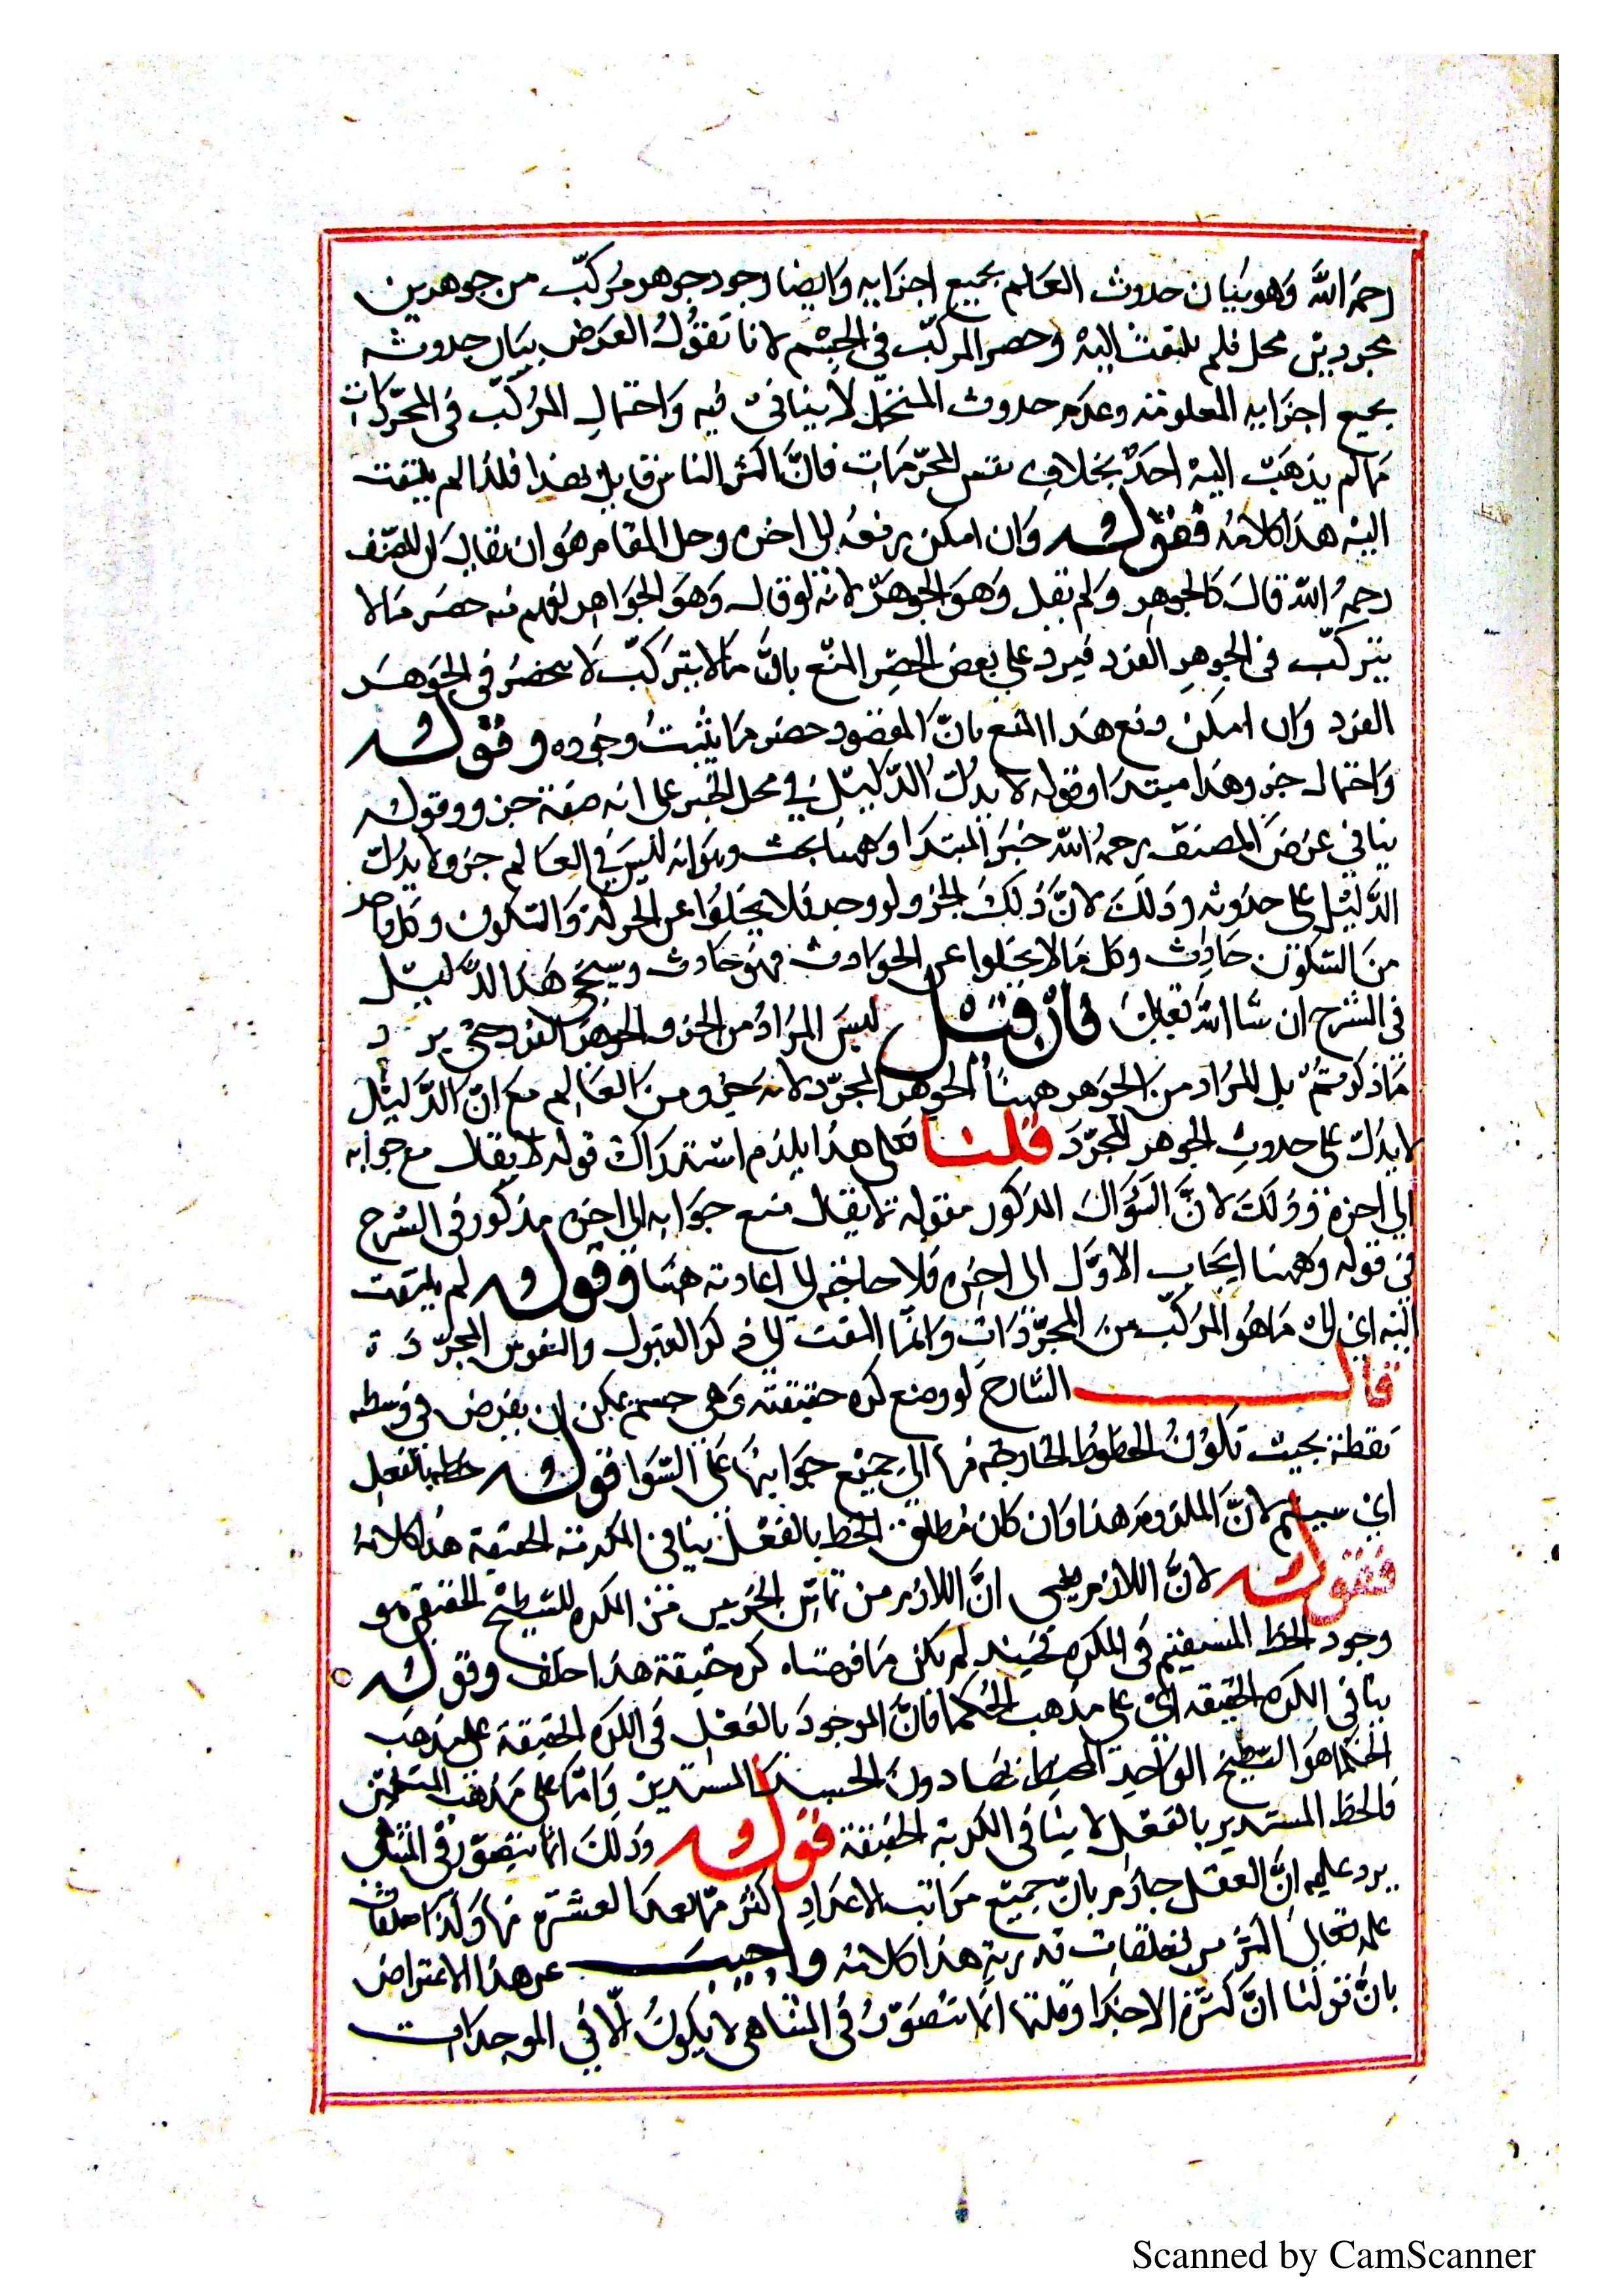 رحمَ اللّٰه وَهو بَيَان حدوث العَالم بجميع اجزَايه وَايضا وجود جوهر مُركبّ من جوهرين
مجردين محل فلم يلتفت اليهْ وحصر المركبّ في الجِسْم لانا نَقوُلُ الغرَض بيَان حدوثه
بجميع اجزَايه المعلومَة وعدَم حدوث المتخيّل لا ينافىْ فيه وَاحتمَالِ المرُكبّ فى المجرّدَاتِ
مَالم يذهَبْ اليهْ احَدٌ بخلافِ نفس المجرّدَاتِ فانَّ اكثر الناس قايل بهذا فلذا لم يلتفت
اليْه هذَا كلامُهُ فقَولُه وَان امكن رفعُهُ الى اخره وحل المقام هَو ان يقالَ ان للمصَنّف
رحمهُ اللّٰه قالَ كالجوهِر وَلم يَقل وَهوَ الجوهَرُ لانه لوقال وَهوَ الجوَاهر لفهم منه حصَر مَالا
يتركبّ فى الجوهرِ الفرد فيرد على بعض الحصْرِ المنْع بانّ مَالا يتركبّ لا ينحصرُ فى الجوَهَر
الفرد وَان امكن دفع هَذا المنع بانّ المقصُود حصرُ مَا يثبتُ وجُوده وقَولُه
وَاحتمال جزء وهذا مبتدا وقوله لا يدُلّ الدّليْل في محل الجر على انه صفة جزء وقوله
ينافي غرَض المصنفّ رحمهُ اللّٰه خبَر المبتدَا وَههنا بحث وهوَ انه ليْسَ في العَالم جزء لا يدُلّ
الدّليْل على حدوُثه وذلكَ لانَّ ذلكَ الجزء لو وجد فلا يخلوُا عن الحركة وَالسّكون وَكل واحد
منَ السّكون حَادِث وكل مَالا يخلوا عن الحوَادث فهوَ حَادث وسيجئ هَذا الدّليْل
فى الشرْح ان شَا اللّٰه تعَالىَ فان قيْل ليسَ المرَادُ من الجزء الجوهرَ الفرد حتى يرد
مَاذكرتمُ بل المرَاد منَ الجوَهر ههنَا الجوهرَ المجرّد لانه جزء منَ العَالم مع انّ الدّليْل
لا يدُلّ على حدوثِ الجوهر المجرّدَ قلنا فعلى هذا يلزم اسْتدرَاك قوله لا يقال مع جوابه
الى اخره وَذلكَ لانَّ السّؤالَ المذكور مقوله لا يقال مع جوَابه الى اخره مذكور فى الشرح
فى قوله وَههنا ايجَاب الاوَّل الى اخِره فلا حاجَة الى اعادته هنَا وقوله لم يلتفت
اليْه اىْ الى مَا هوَ المرَكبّ منَ المجرّدَاتِ وَانمّا التفت الى ذكر العقول والنفوس المجرّدَة
قال الشارح لو وضع كره حقيقة وَهى جسم يمكن ان يفرض في وَسطه
نقطة بحيث تكوُنُ الخطوُط الخارجَة منها الى جميْع جوَانبهَا عَلَى السّوَا قوله خط بالفعِل
اىْ مستقيم لانّ الملزومَ هذا وَان كان مُطلق الخط بالفعْل ينافى الكرية الحقيقة هذا كلامُهُ
فقوله لانَّ اللازم انَّ اللازم من تماسّ الجزئين من الكره للسّطح الحقيقى هو
وجود الخط المستقيم فى الكره فحينئذٍ لم يكن مَا فرضناه كره حقيقة هذا خلف وقوله
ينافى الكره الحقيقه اىْ على مذهب الحُكما فانَّ الموجودَ بالفعْل فى الكره الحقيقة على مذهَب
الحُكما هوَ السّطح الوَاحد المحيط بها دونَ الخط المستدير وَامّا على مَذهَب المتكلمين
فالخط المستدير بالفعل لا ينافى الكرية الحقيقة قوله وذلكَ انما يتصوّر فى المتناهي
يرد عليه انّ العقل جازم بانّ جميْع مرَاتب الاعدَاد اكثر ممّا بعد العشرة منها وَكذا تعلقات
علمه تعَالىَ اكثرُ من تعلقات قدرته هذا كلامُه واجيب عن هذا الاعتراضَ
بانَّ قولنا انّ كثرَة الاجزَا وقلتها انما تتصَوّرُ فى المتناهى لا يكونُ الّا في الموجودَات
Scanned by CamScanner